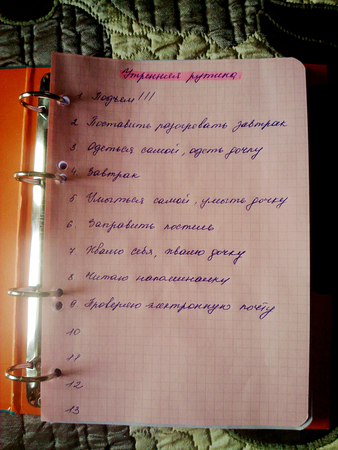 Утренняя рутина
1. Подъем!!!
2. Поставить разогревать завтрак
3. Одеться самой, одеть дочку
4. Завтрак
5. Умыться самой, умыть дочку
6 Заправить постель
7 Хвалю себя, хвалю дочку
8 Читаю напоминалку
9. Проверяю электронную почту
10
11
12
13